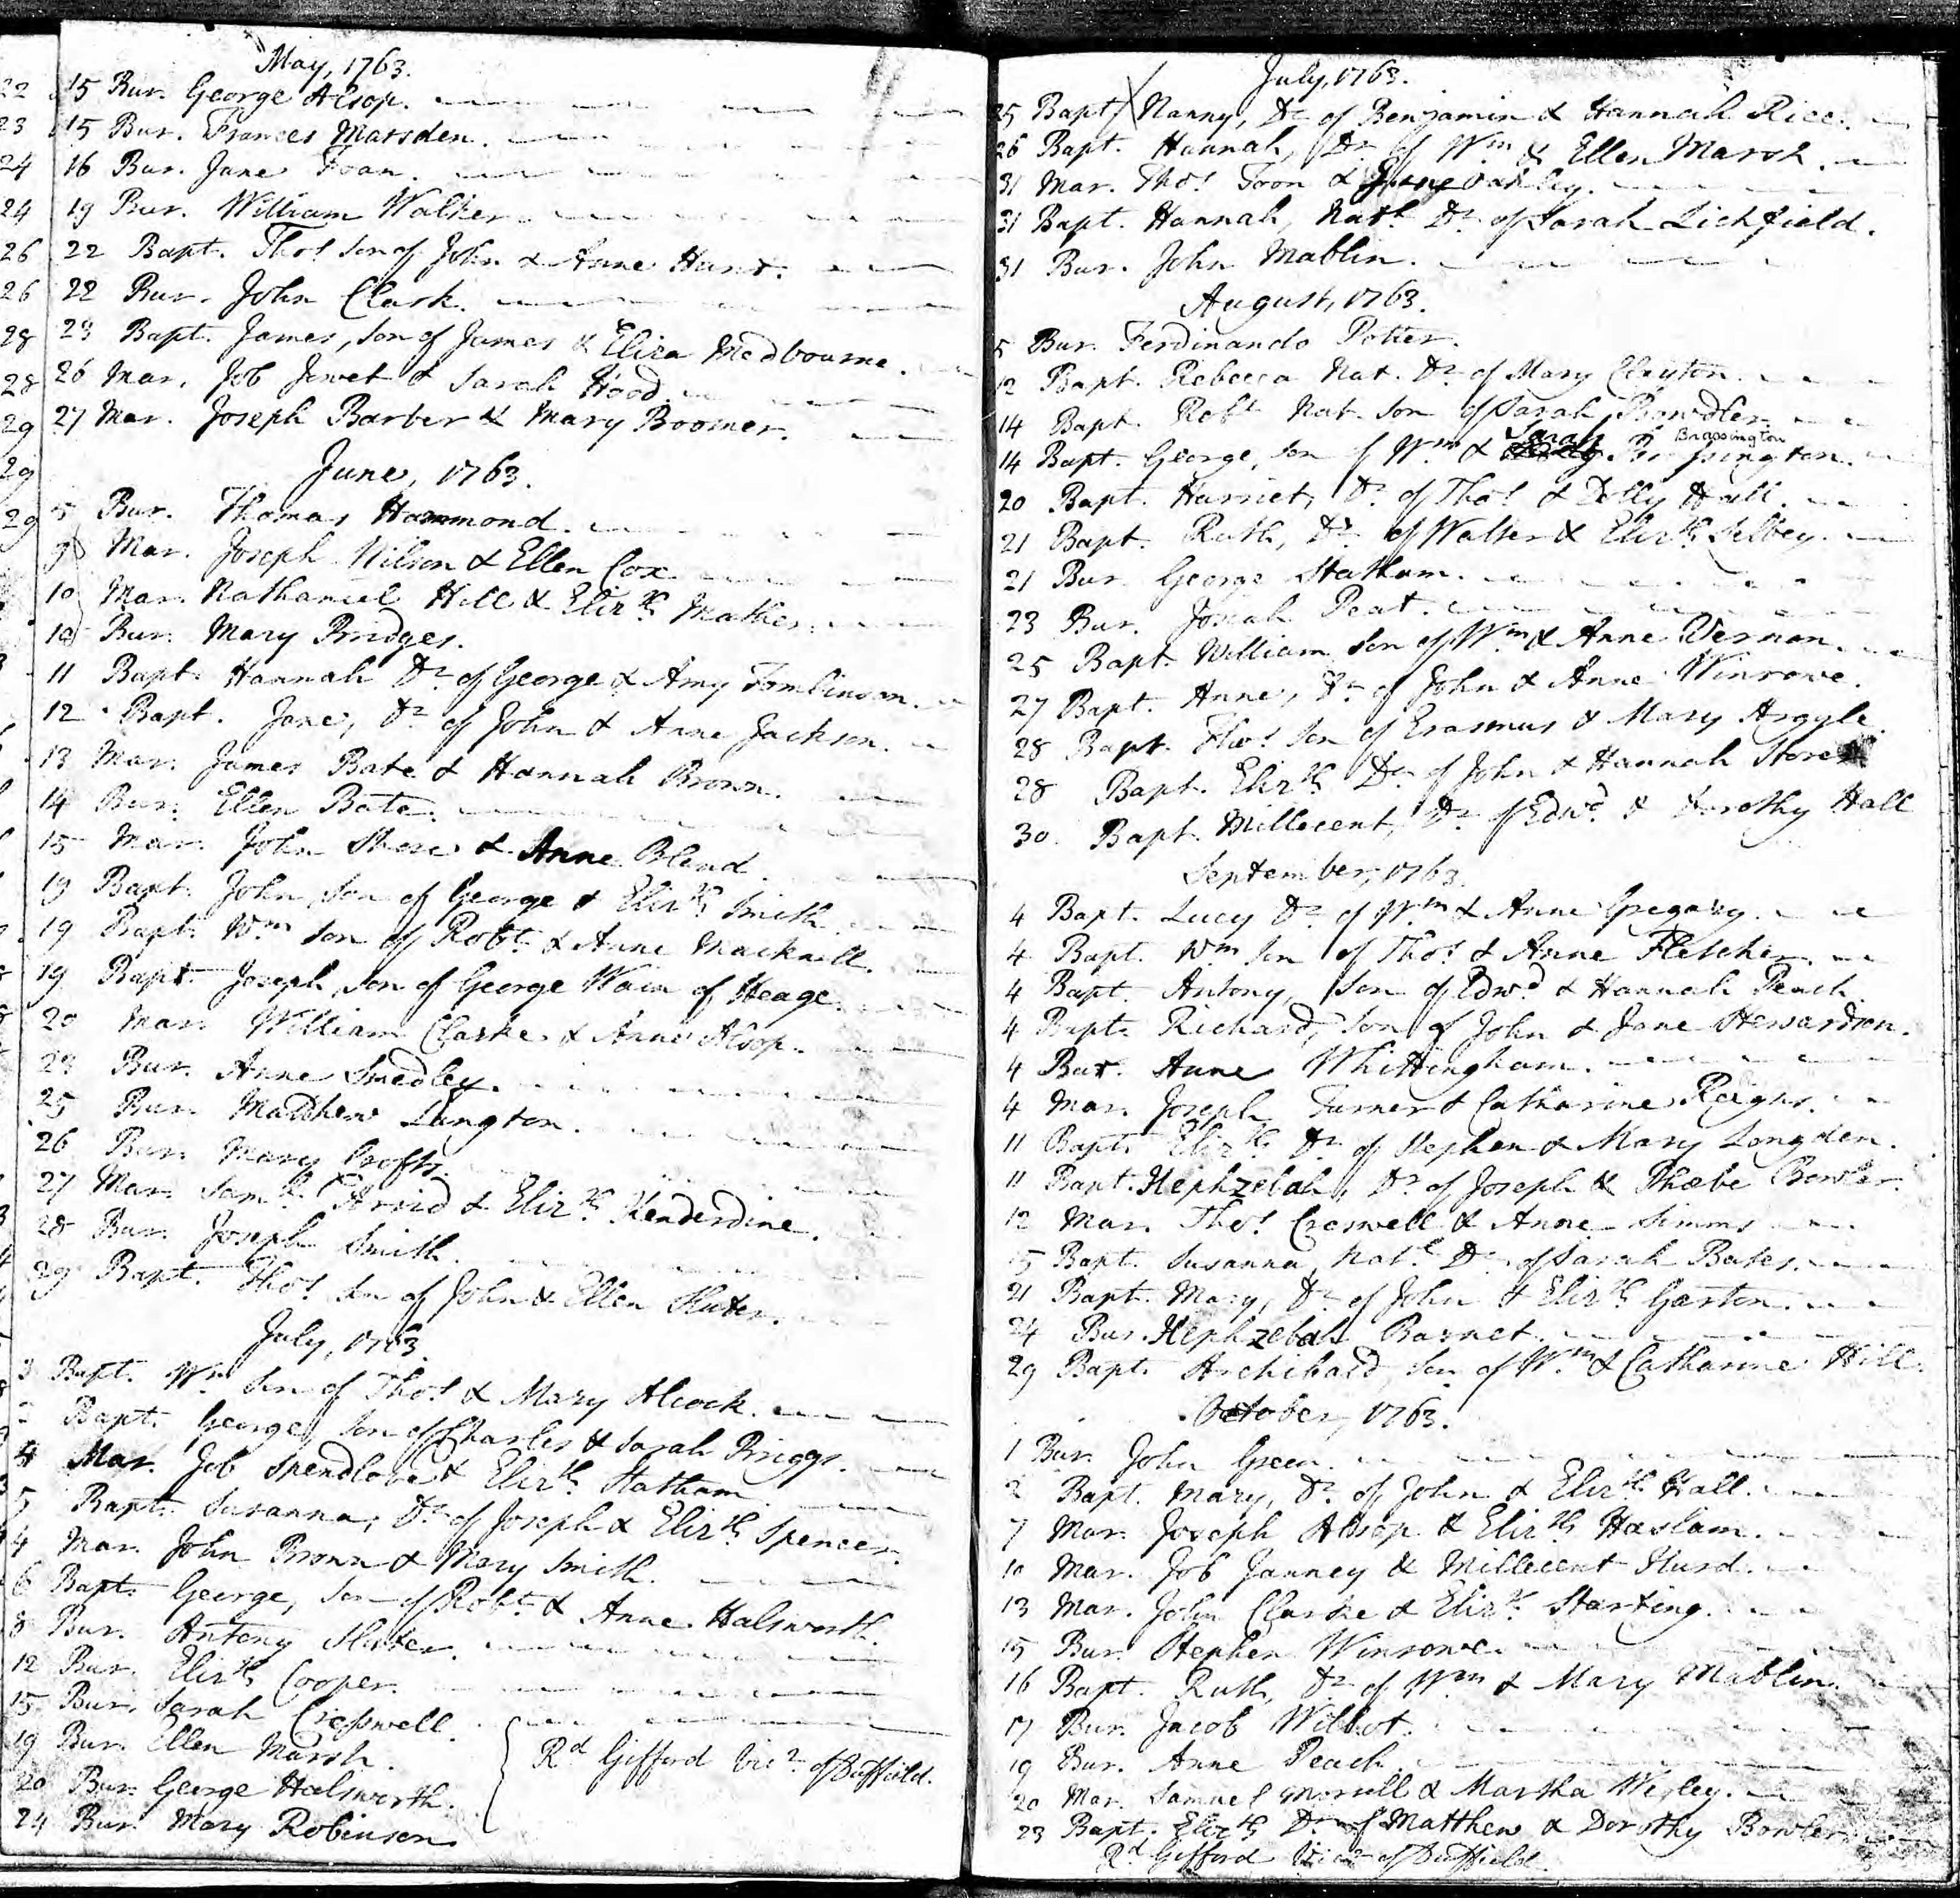 May, 1763.
22 15 Bur. George Alsop.
23 15 Bur. Frances Marsden.
24 16 Bur. Jane Foan.
24 19 Bur. William Walker.
26 22 Bapt. Thos. Son of John & Anne Hunt.
26 22 Bur. John Clark.
28 23 Bapt. James, Son of James & Eliza Medbourne.
28 26 Mar. Job Jewet & Sarah Hood.
29 27 Mar. Joseph Barber & Mary Boomer.
29 June, 1763.
29 5 Bur. Thomas Hammond.
Mar. Joseph Wilson & Ellen Cox
10 Mar. Nathaniel Hill & Elizth. Mather.
10 Bur. Mary Bridges.
11 Bapt. Hannah Dr. of George & Amy Tomlinson.
12 Bapt. Jane, Dr. of John & Anne Jackson.
13 Mar. James Bate & Hannah Brown.
14 Bur. Ellen Bate.
15 Mar. John Shore & Anne Bland.
19 Bapt. John, Son of George & Elizth. Smith.
19 Bapt. Wm. Son of Robt. & Anne Macknell.
19 Bapt. Joseph, Son of George Wain of Heage.
20 Mar. William Clarke & Anne Alsop.
23 Bur. Anne Smedley.
25 Bur. Matthew Langton.
26 Bur. Mary Crofts.
27 Mar. Saml. & Elizth. Kenderdine.
28 Bur. Joseph Smith.
29 Bapt. Thos. Son of John & Ellen Sluter.
July, 1763.
3 Bapt. Wm. Son of Thos. & Mary Alcock.
Bapt. George, Son of Charles & Sarah Briggs.
4 Mar. Job Spendlove & Elizth. Statham.
5 Bapt. Susanna, Dr. of Joseph & Elizth. Spencer.
4 Mar. John Brown & Mary Smith.
6 Bapt. George, Son of Robt. & Anne Halsworth.
8 Bur. Antony Sluter.
12 Bur. Elizth. Cooper.
15 Bur. Sarah Cresswell.
19 Bur. Ellen Marsh.
20 Bur. George Halsworth.
24 Bur. Mary Robinson.
Rd. Gifford Vicr. of Duffield.
July, 1763.
25 Bapt. Nanny, Dr. of Benjamin & Hannah Rice.
26 Bapt. Hannah, Dr. of Wm. & Ellen Marsh.
31 Mar. Thos. Toon & Oakley.
31 Bapt. Hannah, Natl. Dr. of Sarah Lichfield.
31 Bur. John Mablin.
August, 1763.
5 Bur. Ferdinando Potter.
12 Bapt. Rebecca Nat. Dr. of Mary Clayton.
14 Bapt. Robt. Nat. Son of Sarah Bowdler.
14 Bapt. George, Son of Wm. & Sarah Brassington. Brassington
20 Bapt. Harriet, Dr. of Thos. & Dolly Hall.
21 Bapt. Ruth, Dr. of Walter & Elizth. Selbey.
21 Bur. George Statham.
23 Bur. Josiah Peat.
25 Bapt. William Son of Wm. & Anne Vernon.
27 Bapt. Anne, Dr. of John & Anne Winrowe.
28 Bapt. Thos. Son of Erasmus & Mary Argyle.
28 Bapt. Elizth. Dr. of John & Hannah
30 Bapt. Millecent, Dr. of Edwd. & Dorothy Hall
September, 1763.
4 Bapt. Lucy Dr. of Wm. & Anne Gregory.
4 Bapt. Wm. Son of Thos. & Anne Fletcher.
4 Bapt. Antony, Son of Edwd. & Hannah Peach.
4 Bapt. Richard, Son of John & Jane Stewardson.
4 Bur. Anne Whittingham.
4 Mar. Joseph Turner & Catharine
11 Bapt. Elizth. Dr. of Stephen & Mary Longden.
11 Bapt. Hephzebah, Dr. of Joseph & Phæbe Bowler.
12 Mar. Thos. Creswell & Anne Simms
15 Bapt. Susanna, Natl. Dr. of Sarah Bates.
21 Bapt. Mary, Dr. of John & Elizth. Garton.
24 Bur. Hephzebah Barnet.
29 Bapt. Archibald, Son of Wm. & Catharine Hill.
October, 1763.
1 Bur. John Green.
2 Bapt. Mary, Dr. of John & Elizth. Hall.
7 Mar. Joseph Alsop & Elizth. Haslam.
10 Mar. Job Janney & Millecent Hurd.
13 Mar. John Clarke & Elizth. Starting.
15 Bur. Stephen Winrowe.
16 Bapt. Ruth, Dr. of Wm. & Mary Mablin.
17 Bur. Jacob Wilbot.
19 Bur. Anne Peach.
20 Mar. Samuel Morrell & Martha Wigley.
23 Bapt. Elizth. Dr. of Matthew & Dorothy Bowler
Rd. Gifford Vicr. of Duffield.